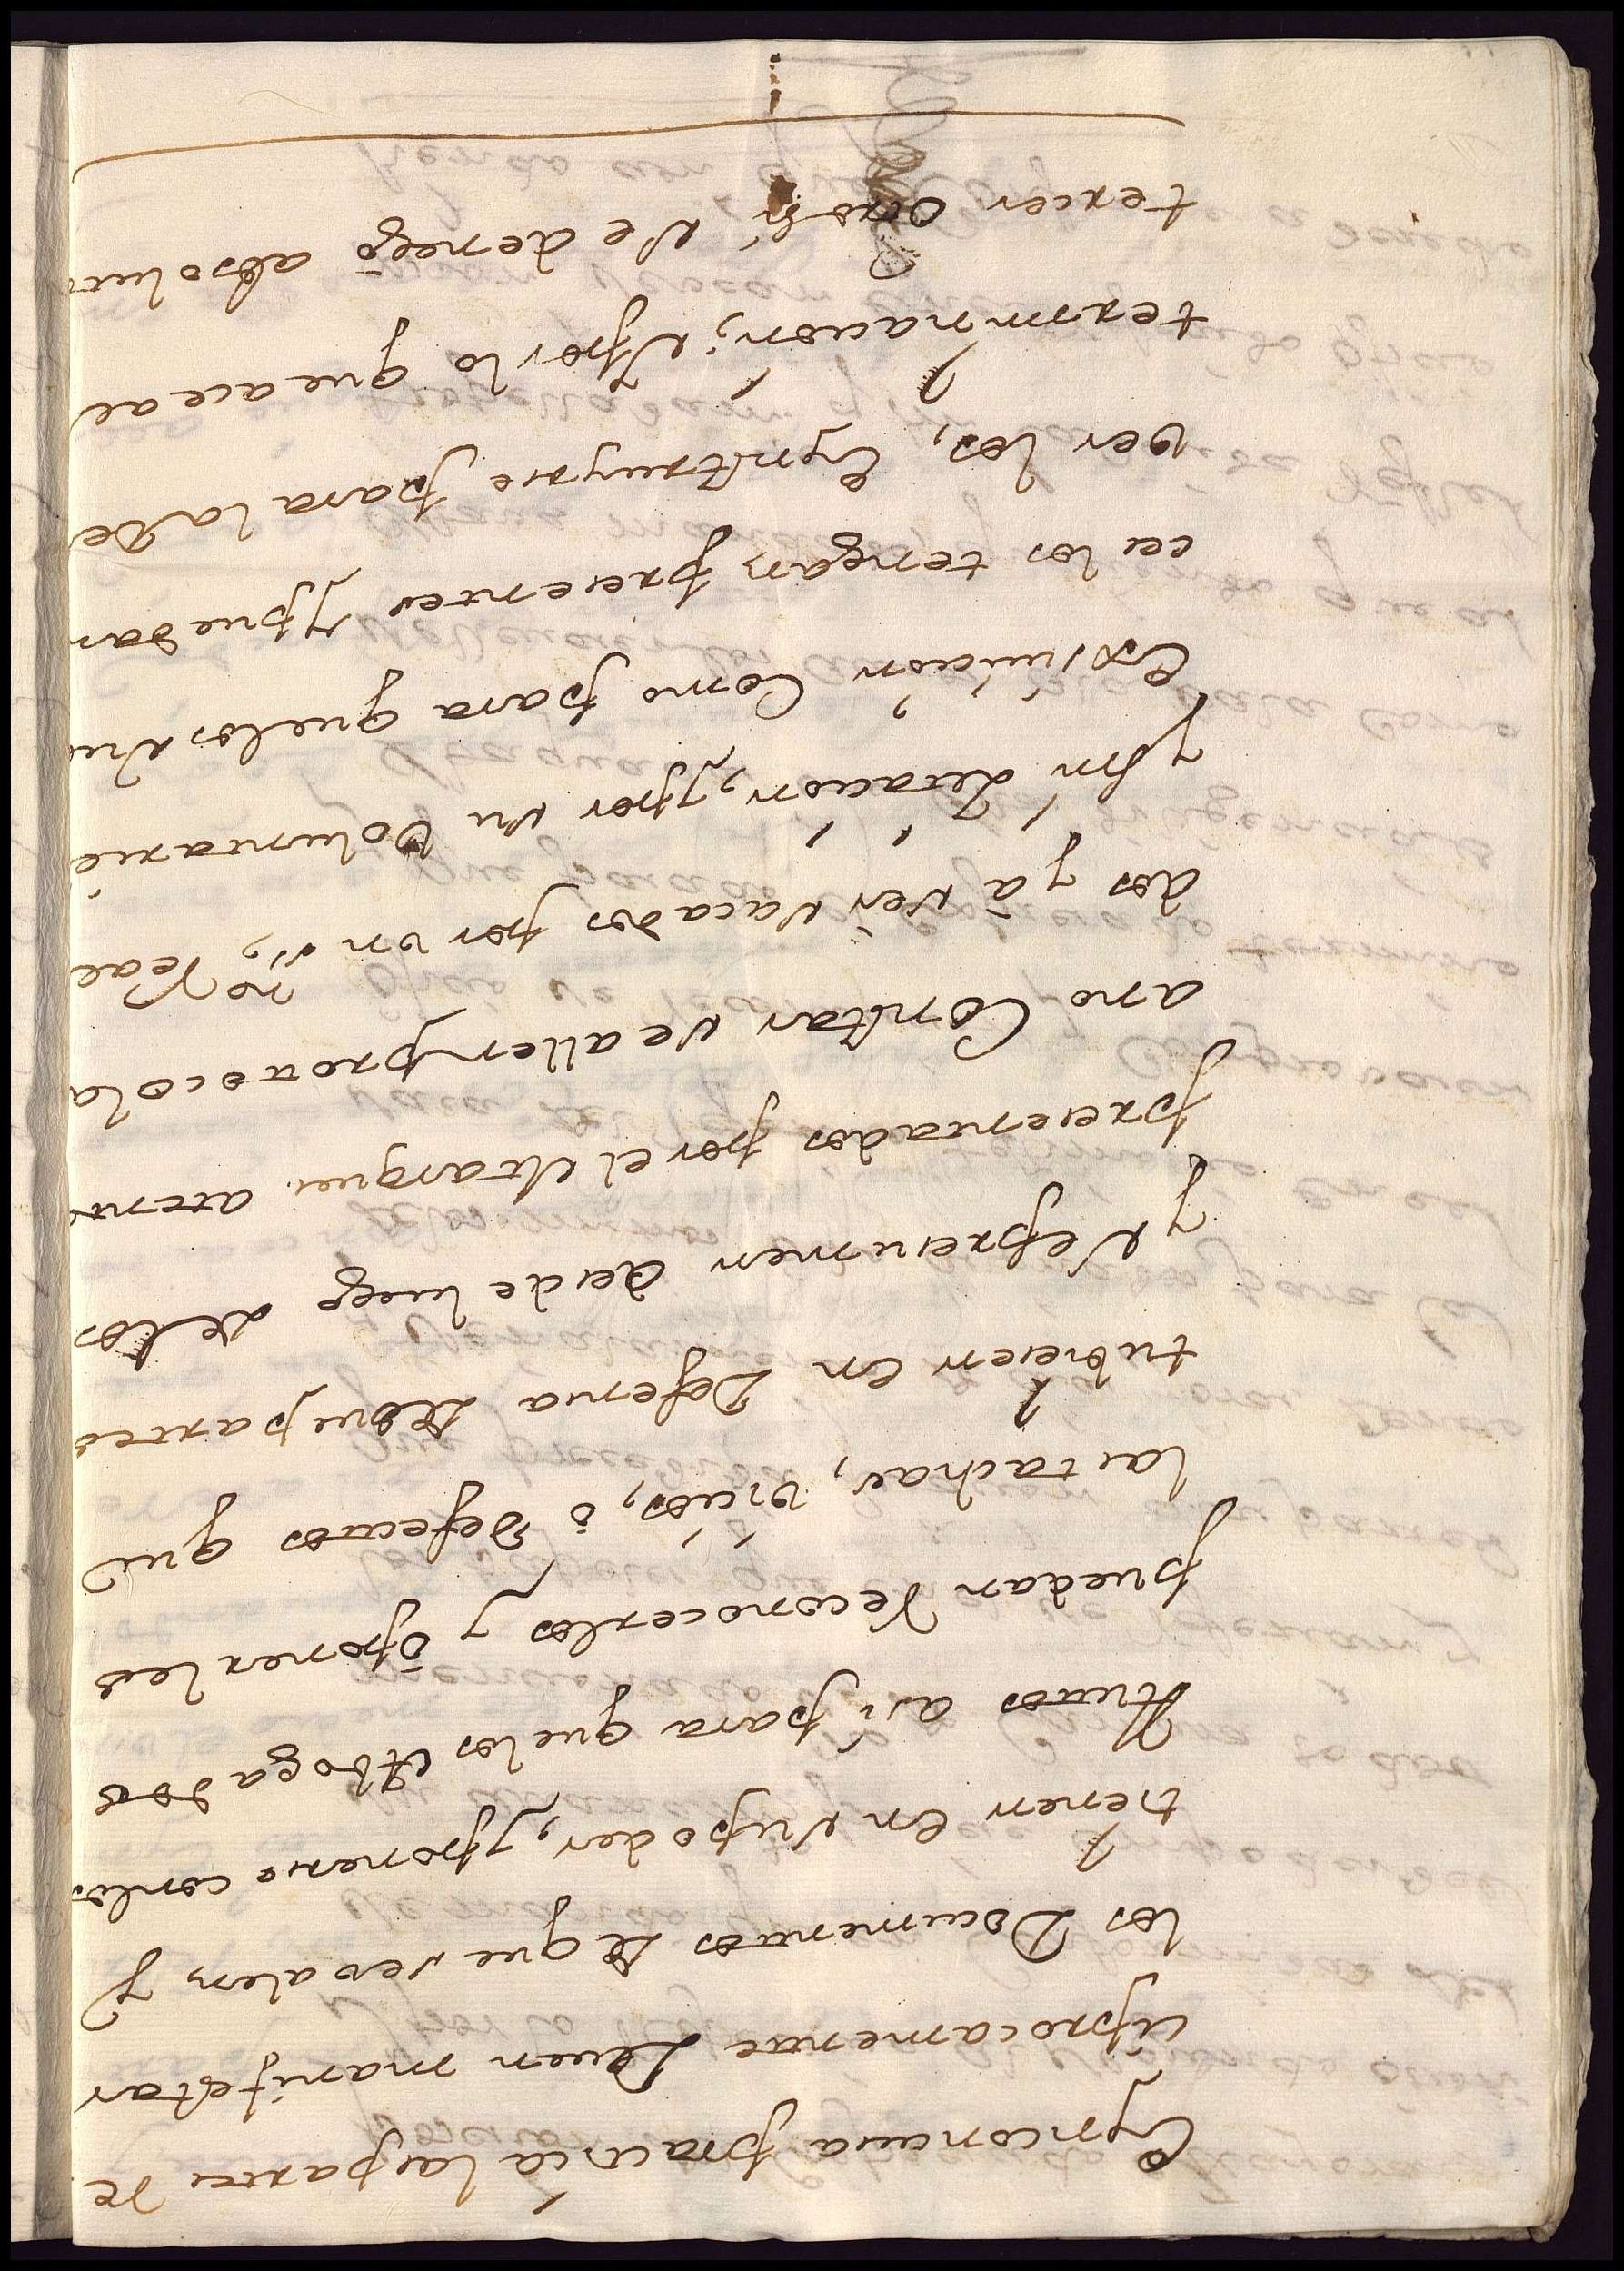 Eynconcusa practica las partes re
ciprocamente Deven manifestar
los Documentos de que se valen y
tienen en su poder, y ponerse con los
Autos asi para que los Abogados
puedan reconocerlos y oponerles
las tachas, vicios, ô defectos que
tubiesen en Defensa de sus partes
y se presumen desde luego de los
presentados por el Marques atento
a no Constar se allen protocola
dos y â ser sacados por un s.no Real
sin citacion, y por su voluntaria
exsivicion Como para que los Jue
ces los tengan presentes y puedan
ver los, e ynstruyrse para la de
terminacion; y por lo que ace al
tercer otrosi, se denegô absolut